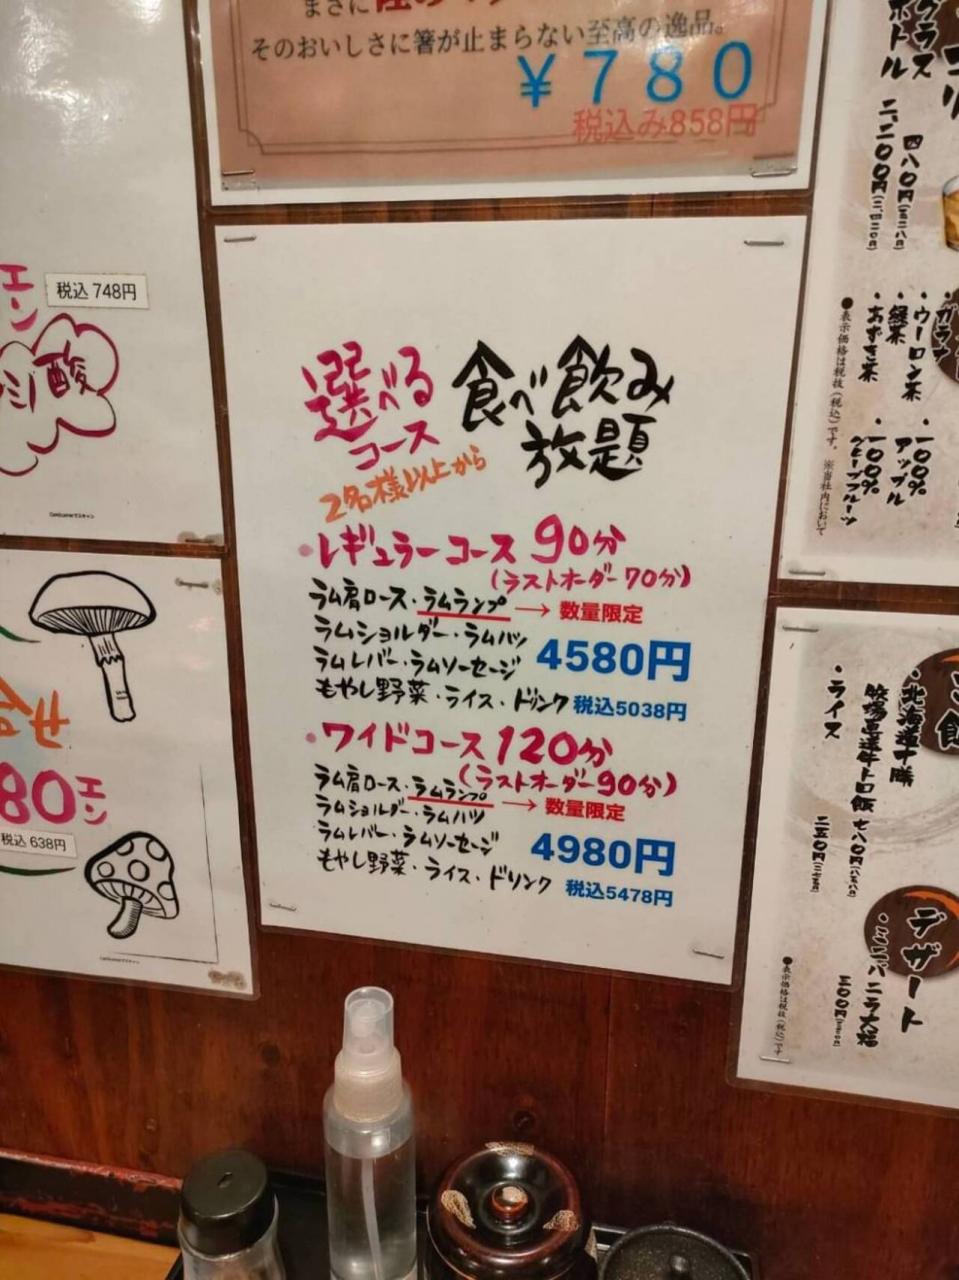 そのおいしさに箸が止まらない至高の逸品。
¥780
税込み858円
エン
税込 748円
酸
選べる
コース
食べ飲み
放題
2名様以上から
・レギュラーコース 90分
(ラストオーダー70分)
ラム肩ロース・ラムランプ → 数量限定
ラムショルダー・ラムハツ
ラムレバー・ラムソーセージ
4580円
もやし野菜・ライス・ドリンク 税込5038円
・ワイドコース 120分
(ラストオーダー90分)
ラム肩ロース・ラムランプ → 数量限定
ラムショルダー・ラムハツ
ラムレバー・ラムソーセージ
4980円
もやし野菜・ライス・ドリンク 税込5478円
80エン
税込 638円
グラス
四八〇円(五二八円)
ボトル
二、二〇〇円(二、四二〇円)
・ガラナ
・ウーロン茶
・緑茶
・あずき茶
・一〇〇%
アップル
・一〇〇%
グレープフルーツ
●表示価格は税抜(税込)です。 ※当社内において
・北海道十勝
牧場直送牛トロ飯 七八〇円(八五八円)
・ライス 二五〇円(二七五円)
デザート
・ミニバニラ大福
三〇〇円(三三〇円)
●表示価格は税抜(税込)です